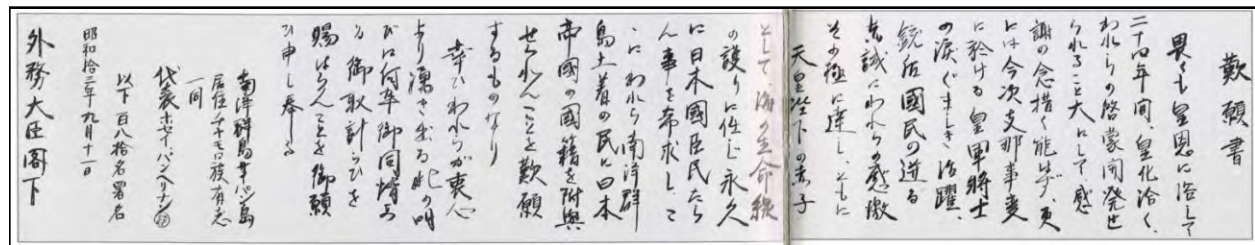 歎願書
畏くも皇恩に浴して
二十四年間、皇化洽く、
われらの啓蒙開発せ
られること大にして感
謝の念措く能はず、更
には今次支那事変
に於ける皇軍将士
の涙ぐましき活躍、
銃后國民の迸る
赤誠にわれらの感激
その極に達し、ともに
天皇陛下の赤子
として、海の生命線
の護りに任じ永久
に日本國臣民たら
ん事を希求し、こ
ゝにわれら南洋群
島土着の民に日本
帝國の國籍を附與
せられんことを歎願
するものなり
幸ひわれらが衷心
より湧き出る此の明
びに何卒御同情あ
る御取計らひを
賜はらんことを御願
ひ申し奉る
南洋群島サイパン島
居住チャモロ族有志
一同
代表ホセ・イ・パンヘリナン
以下百八拾名署名
昭和拾三年九月十一日
外務大臣閣下